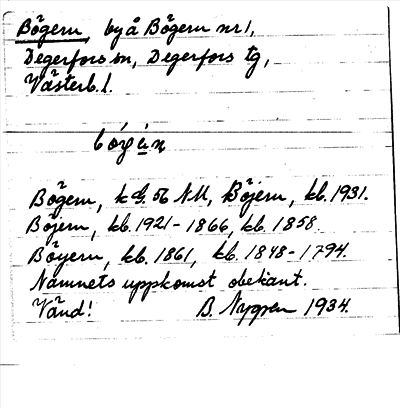 Bögern, by å Bögern nr 1,
Degerfors sn, Degerfors tg,
Västerb. l.
Bögern, 56 NU, Böjern, kb. 1931.
Böjern, kb. 1921-1866, kb. 1858.
Böyern, kb. 1861, kb. 1848-1794.
Namnets uppkomst obekant.
Vänd! B. Nygren 1934.